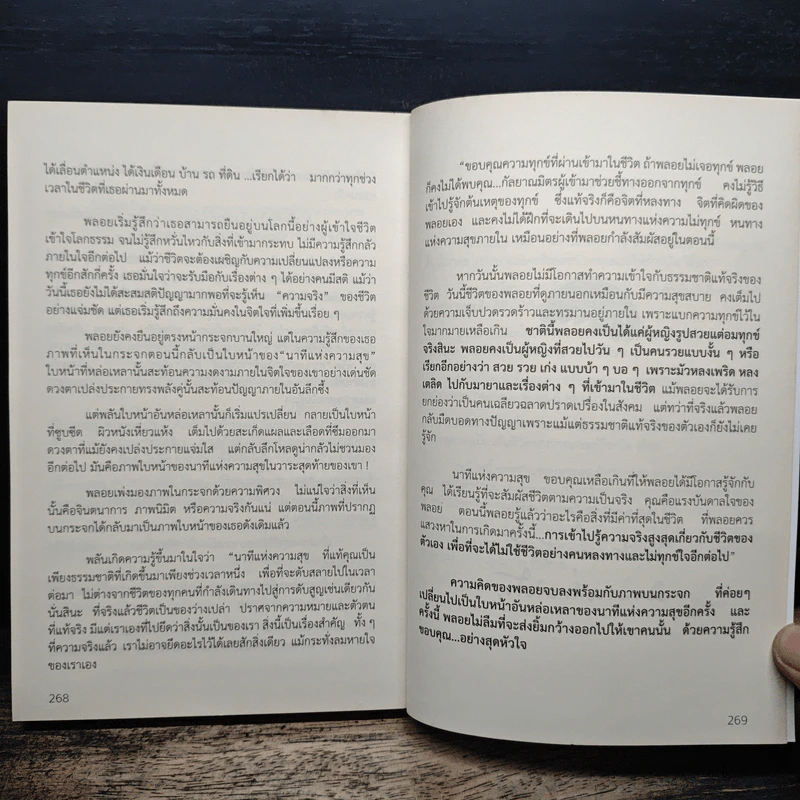 ได้เลื่อนตำแหน่ง ได้เงินเดือน บ้าน รถ ที่ดิน ...เรียกได้ว่า มากกว่าทุกช่วง
เวลาในชีวิตที่เธอผ่านมาทั้งหมด
พลอยเริ่มรู้สึกว่าเธอสามารถยืนอยู่บนโลกนี้อย่างผู้เข้าใจชีวิต
เข้าใจโลกธรรม จนไม่รู้สึกหวั่นไหวกับสิ่งที่เข้ามากระทบ ไม่มีความรู้สึกกลัว
ภายในใจอีกต่อไป แม้ว่าชีวิตจะต้องเผชิญกับความเปลี่ยนแปลงหรือความ
ทุกข์อีกสักกี่ครั้ง เธอมั่นใจว่าจะรับมือกับเรื่องต่าง ๆ ได้อย่างคนมีสติ แม้ว่า
วันนี้เธอยังไม่ได้สะสมสติปัญญามากพอที่จะรู้เห็น “ความจริง” ของชีวิต
อย่างแจ่มชัด แต่เธอเริ่มรู้สึกถึงความมั่นคงในจิตใจที่เพิ่มขึ้นเรื่อย ๆ
พลอยยังคงยืนอยู่ตรงหน้ากระจกบานใหญ่ แต่ในความรู้สึกของเธอ
ภาพที่เห็นในกระจกตอนนี้กลับเป็นใบหน้าของ“นาทีแห่งความสุข”
ใบหน้าที่หล่อเหลานั้นสะท้อนความงดงามภายในจิตใจของเขาอย่างเด่นชัด
ดวงตาเปล่งประกายทรงพลังคู่นั้นสะท้อนปัญญาภายในอันลึกซึ้ง
แต่พลันใบหน้าอันหล่อเหลานั้นก็เริ่มแปรเปลี่ยน กลายเป็นใบหน้า
ที่ซูบซีด ผิวหนังเหี่ยวแห้ง เต็มไปด้วยสะเก็ดแผลและเลือดที่ซึมออกมา
ดวงตาที่แม้ยังคงเปล่งประกายแจ่มใส แต่กลับลึกโหลดูน่ากลัวไม่ชวนมอง
อีกต่อไป มันคือภาพใบหน้าของนาทีแห่งความสุขในวาระสุดท้ายของเขา !
พลอยเพ่งมองภาพในกระจกด้วยความพิศวง ไม่แน่ใจว่าสิ่งที่เห็น
นั้นคือจินตนาการ ภาพนิมิต หรือความจริงกันแน่ แต่ตอนนี้ภาพที่ปรากฏ
บนกระจกได้กลับมาเป็นภาพใบหน้าของเธอดังเดิมแล้ว
พลันเกิดความรู้ขึ้นมาในใจว่า “นาทีแห่งความสุข ที่แท้คุณเป็น
เพียงธรรมชาติที่เกิดขึ้นมาเพียงช่วงเวลาหนึ่ง เพื่อที่จะดับสลายไปในเวลา
ต่อมา ไม่ต่างจากชีวิตของทุกคนที่กำลังเดินทางไปสู่การดับสูญเช่นเดียวกัน
นั่นสินะ ที่จริงแล้วชีวิตเป็นของว่างเปล่า ปราศจากความหมายและตัวตน
ที่แท้จริง มีแต่เราเองที่ไปยึดว่าสิ่งนั้นเป็นของเรา สิ่งนี้เป็นเรื่องสำคัญ ทั้ง ๆ
ที่ความจริงแล้ว เราไม่อาจยึดอะไรไว้ได้เลยสักสิ่งเดียว แม้กระทั่งลมหายใจ
ของเราเอง
268
“ขอบคุณความทุกข์ที่ผ่านเข้ามาในชีวิต ถ้าพลอยไม่เจอทุกข์ พลอย
ก็คงไม่ได้พบคุณ...กัลยาณมิตรผู้เข้ามาช่วยชี้ทางออกจากทุกข์ คงไม่รู้วิธี
เข้าไปรู้จักต้นเหตุของทุกข์ ซึ่งแท้จริงก็คือจิตที่หลงทาง จิตที่คิดผิดของ
พลอยเอง และคงไม่ได้ฝึกที่จะเดินไปบนหนทางแห่งความไม่ทุกข์ หนทาง
แห่งความสุขภายใน เหมือนอย่างที่พลอยกำลังสัมผัสอยู่ในตอนนี้
หากวันนั้นพลอยไม่มีโอกาสทำความเข้าใจกับธรรมชาติแท้จริงของ
ชีวิต วันนี้ชีวิตของพลอยที่ดูภายนอกเหมือนกับมีความสุขสบาย คงเต็มไป
ด้วยความเจ็บปวดรวดร้าวและทรมานอยู่ภายใน เพราะแบกความทุกข์ไว้ใน
ใจมากมายเหลือเกิน ชาตินี้พลอยคงเป็นได้แค่ผู้หญิงรูปสวยแต่อมทุกข์
จริงสินะ พลอยคงเป็นผู้หญิงที่สวยไปวัน ๆ เป็นคนรวยแบบงั้น ๆ หรือ
เรียกอีกอย่างว่า สวย รวย เก่ง แบบบ้า ๆ บอ ๆ เพราะมัวหลงเพริด หลง
เตลิด ไปกับมายาและเรื่องต่าง ๆ ที่เข้ามาในชีวิต แม้พลอยจะได้รับการ
ยกย่องว่าเป็นคนเฉลียวฉลาดปราดเปรื่องในสังคม แต่ทว่าที่จริงแล้วพลอย
กลับมืดบอดทางปัญญาเพราะแม้แต่ธรรมชาติแท้จริงของตัวเองก็ยังไม่เคย
รู้จัก
นาทีแห่งความสุข ขอบคุณเหลือเกินที่ให้พลอยได้มีโอกาสรู้จักกับ
คุณ ได้เรียนรู้ที่จะสัมผัสชีวิตตามความเป็นจริง คุณคือแรงบันดาลใจของ
พลอย ตอนนี้พลอยรู้แล้วว่าอะไรคือสิ่งที่มีค่าที่สุดในชีวิต ที่พลอยควร
แสวงหาในการเกิดมาครั้งนี้...การเข้าไปรู้ความจริงสูงสุดเกี่ยวกับชีวิตของ
ตัวเอง เพื่อที่จะได้ไม่ใช้ชีวิตอย่างคนหลงทางและไม่ทุกข์ใจอีกต่อไป”
ความคิดของพลอยจบลงพร้อมกับภาพบนกระจก ที่ค่อยๆ
เปลี่ยนไปเป็นใบหน้าอันหล่อเหลาของนาทีแห่งความสุขอีกครั้ง และ
ครั้งนี้ พลอยไม่ลืมที่จะส่งยิ้มกว้างออกไปให้เขาคนนั้น ด้วยความรู้สึก
ขอบคุณ...อย่างสุดหัวใจ
269